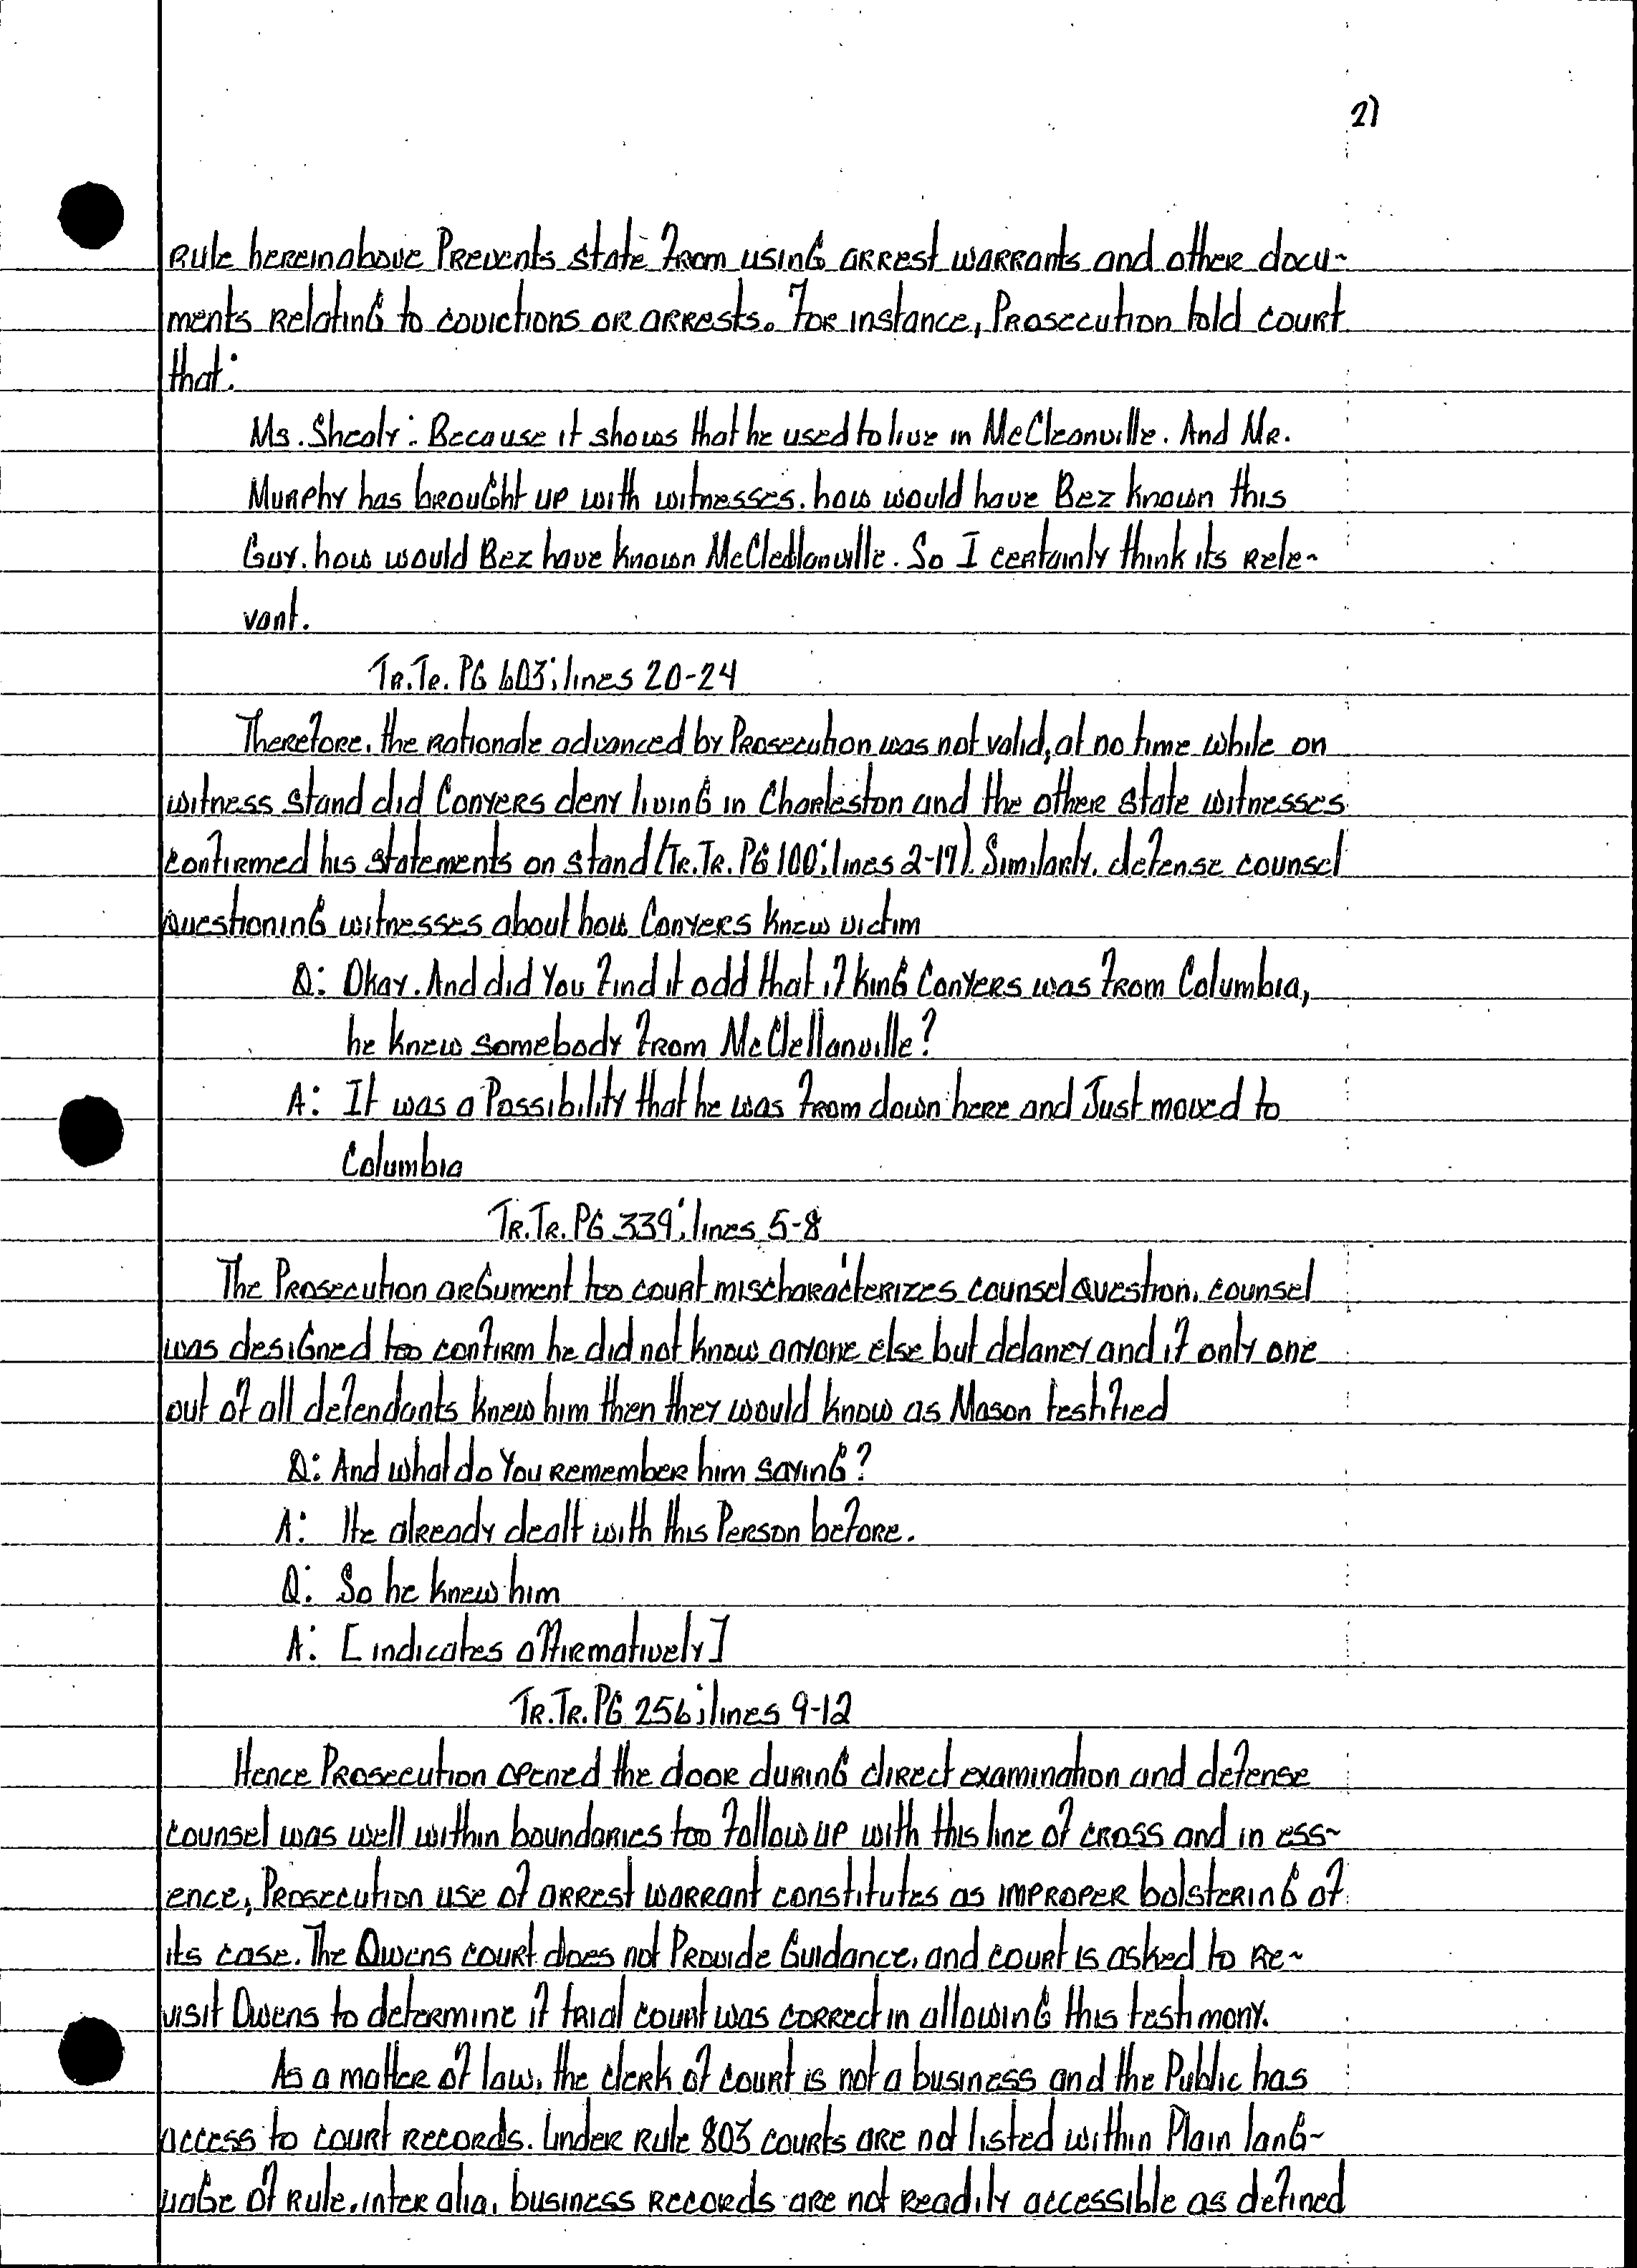 2)
Rule hereinabove Prevents state from using arrest warrants and other docu-
ments relating to covictions or arrests. For instance, Prosecution told court
that:
Ms. Shealy: Because it shows that he used to live in McCleanville. And Mr.
Murphy has brought up with witnesses. how would have Bez known this
Guy. how would Bez have known McClellanville. So I certainly think its rele-
vant.
Tr.Tr. PG 603; lines 20-24
Therefore, the rationale advanced by Prosecution was not valid, at no time while on
witness stand did Conyers deny living in Charleston and the other state witnesses
confirmed his statements on stand (Tr.Tr. PG 100; lines 2-17). Similarly, defense counsel
questioning witnesses about how Conyers knew victim
Q: Okay. And did You find it odd that if King Conyers was from Columbia,
he knew somebody from McClellanville?
A: It was a Possibility that he was from down here and Just moved to
Columbia
Tr.Tr. PG 339; lines 5-8
The Prosecution argument too court mischaracterizes counsel question. counsel
was designed too confirm he did not know anyone else but delaney and if only one
out of all defendants knew him then they would know as Mason testified
Q: And what do You remember him saying?
A: He already dealt with this Person before.
Q: So he knew him
A: [indicates affirmatively]
Tr.Tr. PG 256; lines 9-12
Hence Prosecution opened the door during direct examination and defense
counsel was well within boundaries too follow up with this line of cross and in ess-
ence, Prosecution use of arrest warrant constitutes as improper bolstering of
its case. The Owens court does not Provide Guidance, and court is asked to re-
visit Owens to determine if trial court was correct in allowing this testimony.
As a matter of law, the clerk of court is not a business and the Public has
access to court records. Under Rule 803 courts are not listed within Plain lang-
uage of Rule, inter alia, business records are not readily accessible as defined